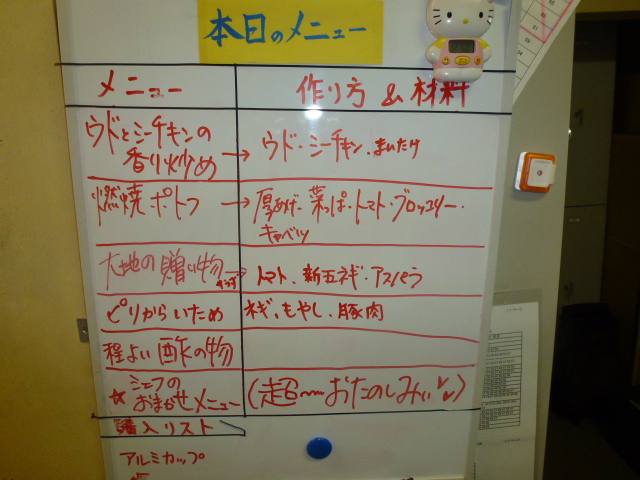 本日のメニュー
メニュー 作り方 & 材料
ウドとシーチキンの
香り炒め → ウド・シーチキン・まいたけ
燃焼ポトフ → 厚あげ・葉っぱ・トマト・ブロッコリー・
キャベツ
大地の贈り物 → トマト、新玉ネギ・アスパラ
ピリからいため ネギ、もやし、豚肉
程よい酢の物
☆ シェフの
おまかせメニュー (超〜おたのしみぃ♥♥)
購入リスト
アルミカップ